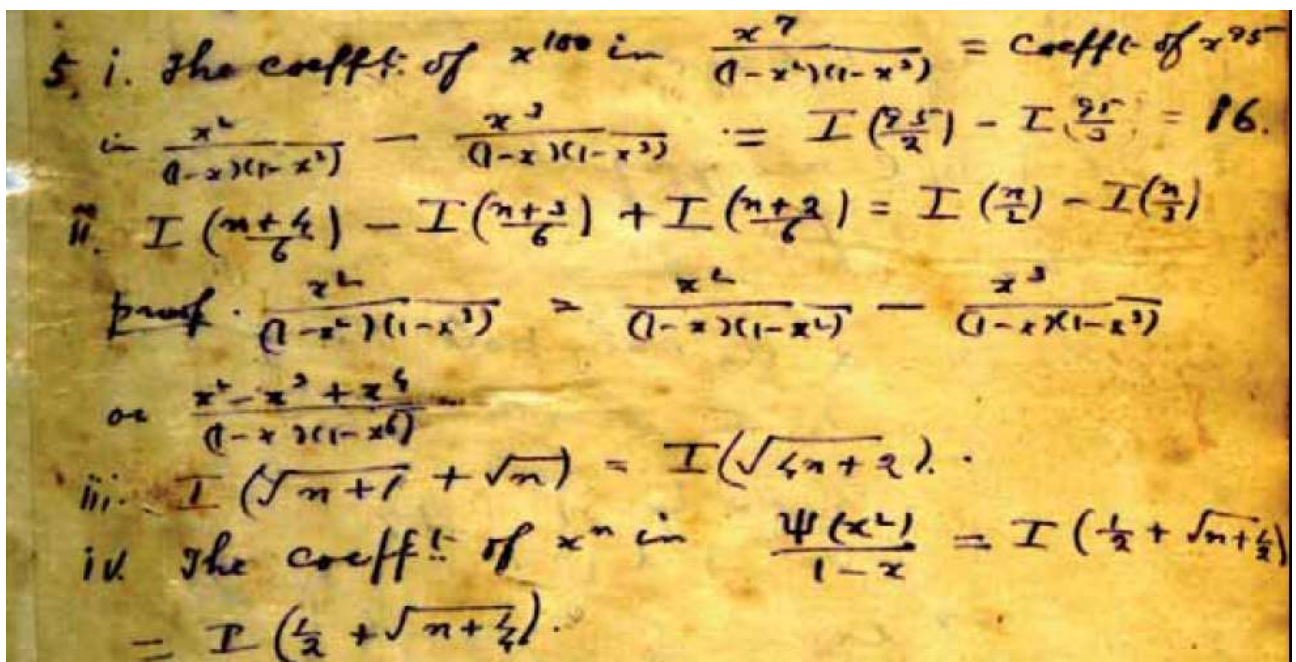 5. i. The coefft. of x^100 in x^7/((1-x^2)(1-x^3)) = coefft. of x^95
in x^2/((1-x)(1-x^2)) - x^3/((1-x)(1-x^3)) = I(95/2) - I(95/3) = 16.
ii. I((n+4)/6) - I((n+3)/6) + I((n+2)/6) = I(n/2) - I(n/3)
proof. x^2/((1-x^2)(1-x^3)) = x^2/((1-x)(1-x^2)) - x^3/((1-x)(1-x^3))
or (x^2-x^3+x^4)/((1-x)(1-x^6))
iii. I(√(n+1) + √n) = I(√(4n+2)).
iv. The coefft. of x^n in Ψ(x^2)/(1-x) = I(1/2 + √(n+1/2))
= I(1/2 + √(n+1/4)).